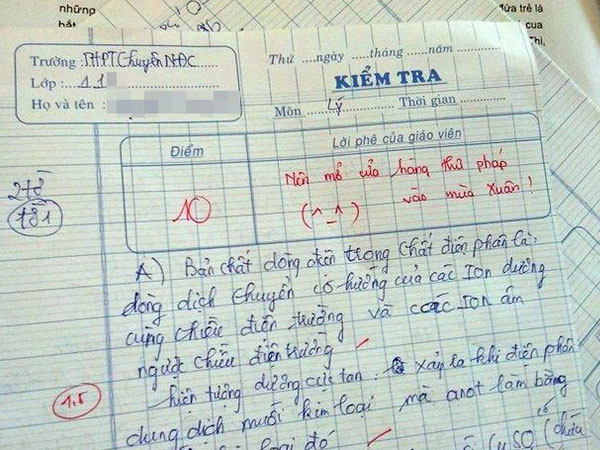 những
đứa trẻ là
của
Trường : THPT Chuyên NĐC
Lớp : 11
Họ và tên :
Thứ ....ngày .....tháng .....năm ........
KIỂM TRA
Môn Lý Thời gian
Điểm
Lời phê của giáo viên
10
Nên mở cửa hàng thư pháp
(^_^) vào mùa xuân !
278
181
A) Bản chất dòng điện trong chất điện phân là:
dòng dịch chuyển có hướng của các Ion dương
cùng chiều điện trường và các Ion âm
ngược chiều điện trường
1,5
hiện tượng dương cực tan : xảy ra khi điện phân
dung dịch muối kim loại mà anot làm bằng
loại đó
CuSO